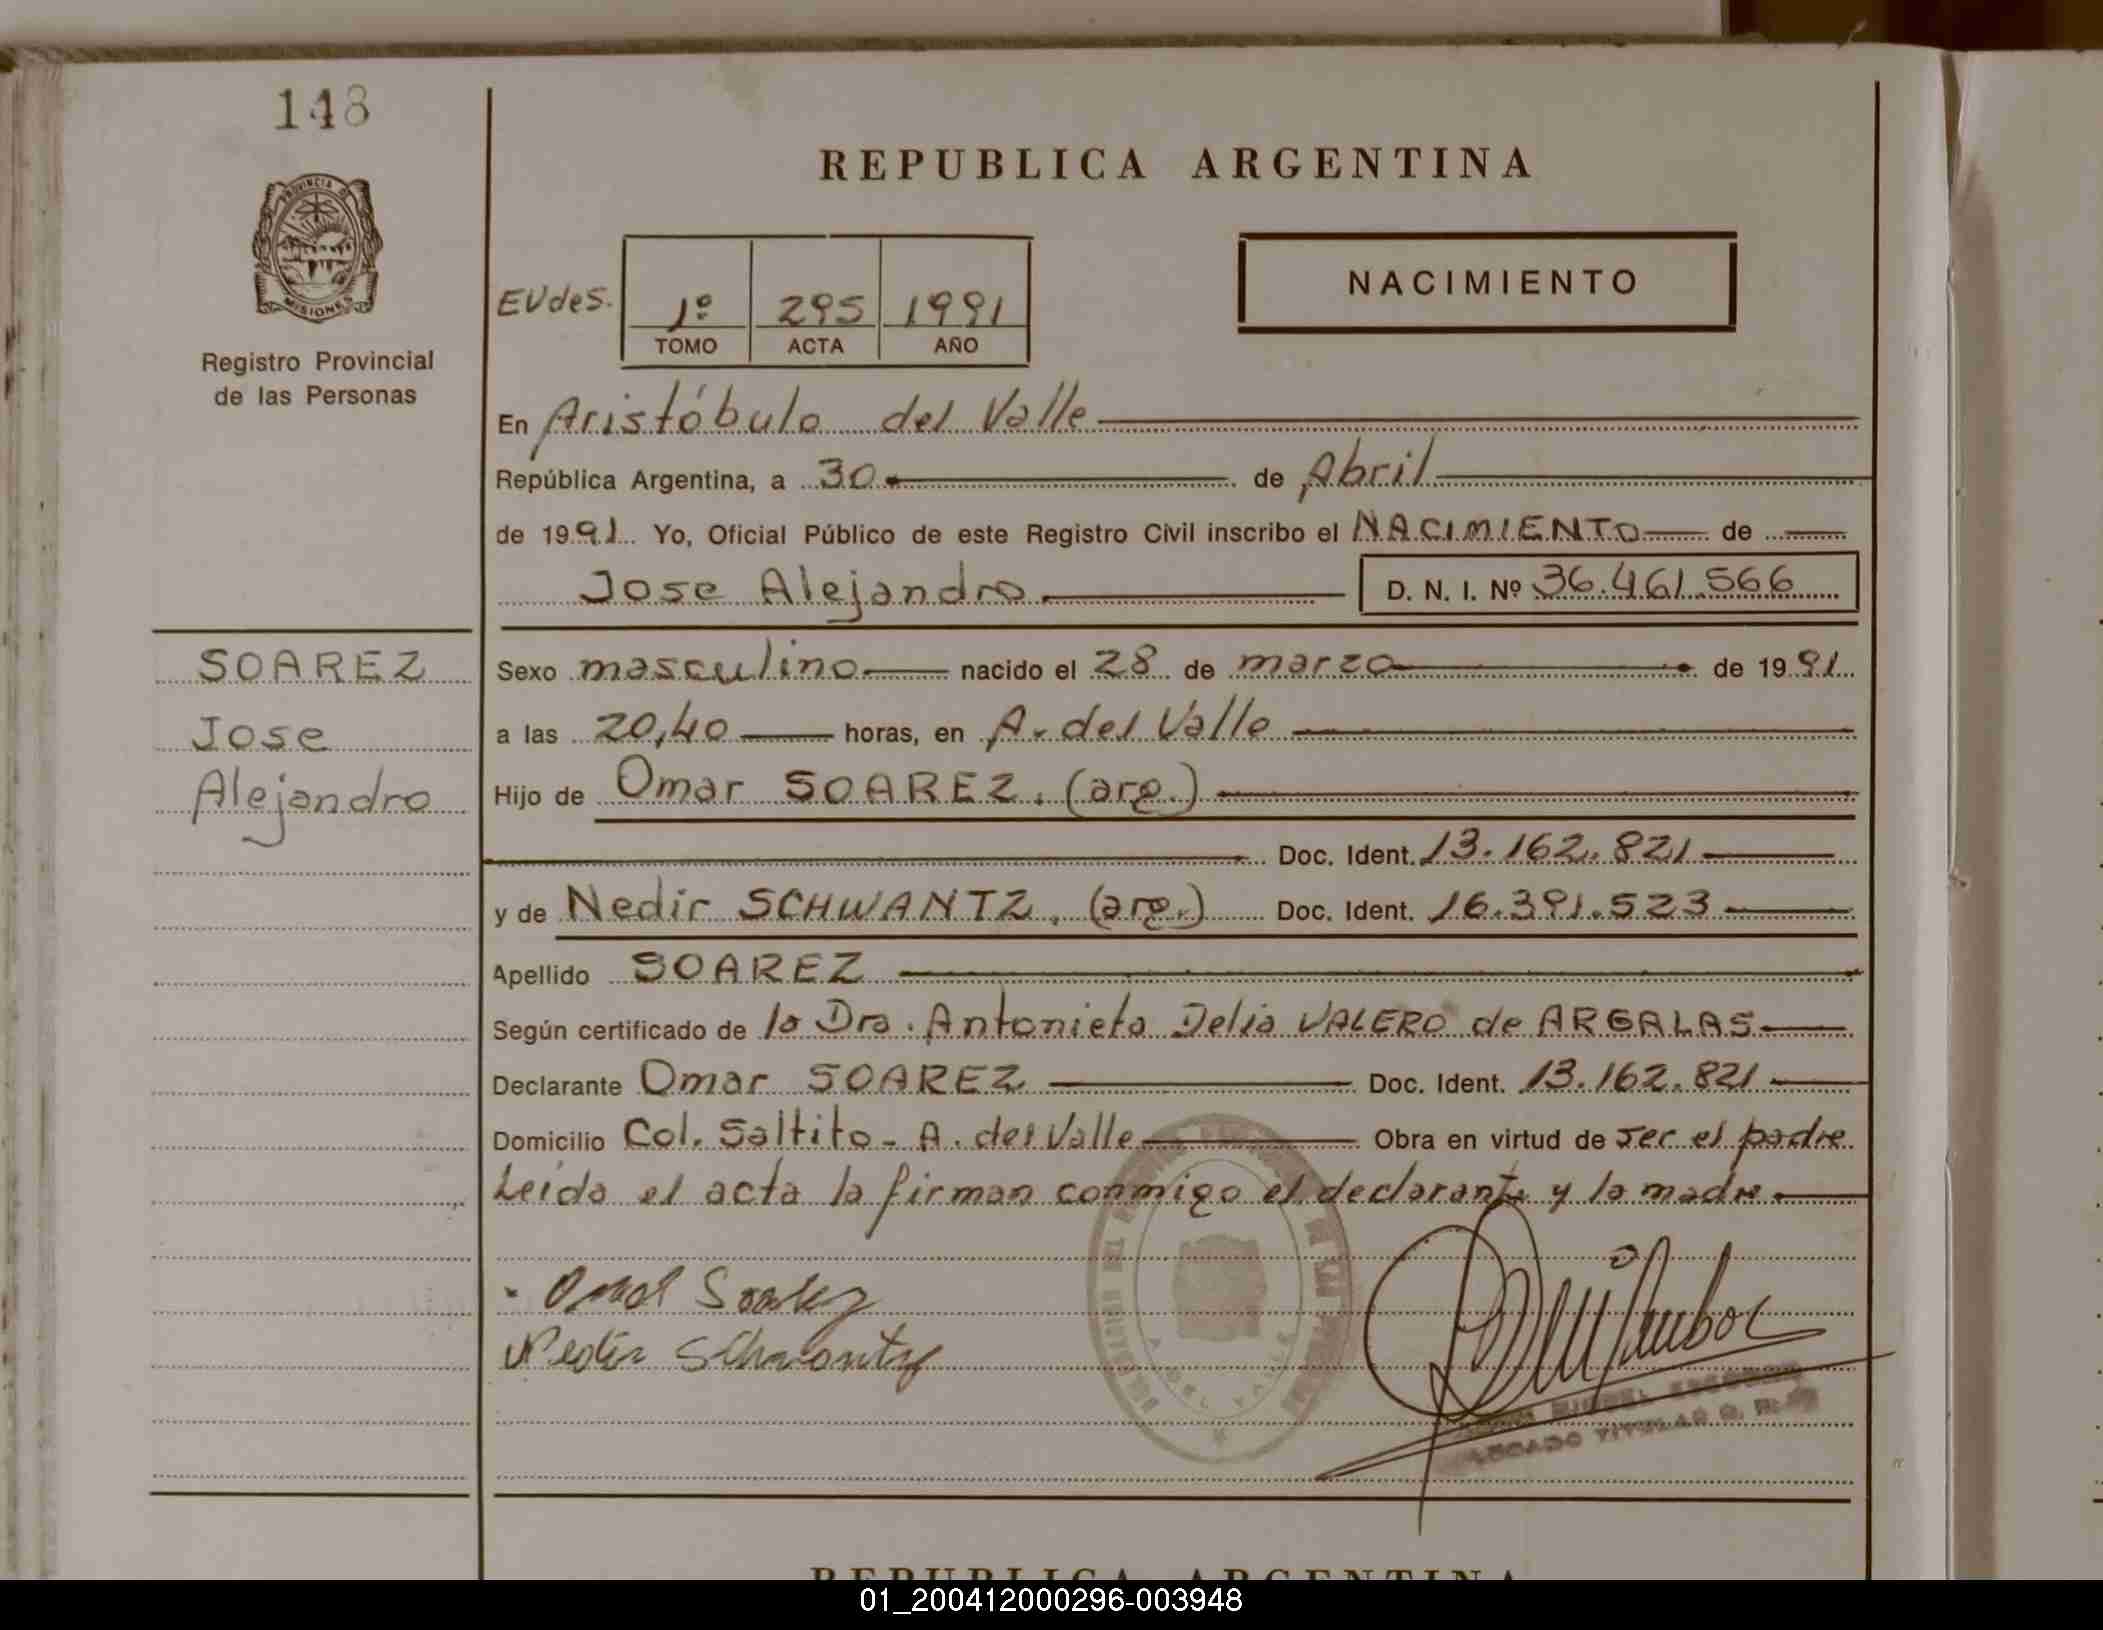 148
PROVINCIA D
MISIONES
Registro Provincial
de las Personas
REPUBLICA ARGENTINA
EVdes.
1º 295 1991
TOMO ACTA AÑO
NACIMIENTO
En Aristóbulo del Valle
República Argentina, a 30 de Abril
de 1991 Yo, Oficial Público de este Registro Civil inscribo el NACIMIENTO de
Jose Alejandro D. N. I. Nº 36.461.566
SOAREZ
Jose
Alejandro
Sexo masculino nacido el 28 de marzo de 1991
a las 20,40 horas, en A. del Valle
Hijo de Omar SOAREZ. (arg.)
Doc. Ident. 13.162.821
y de Nedir SCHWANTZ. (arg.) Doc. Ident. 16.391.523
Apellido SOAREZ
Según certificado de la Dra. Antonieta Delia VALERO de ARGALAS
Declarante Omar SOAREZ Doc. Ident. 13.162.821
Domicilio Col. Saltito - A. del Valle Obra en virtud de ser el padre
Leída el acta la firman conmigo el declarante y la madre.
Omar Soarez
Nedir Schwantz
MIGUEL
TITULAR
REPUBLICA ARGENTINA
01_200412000296-003948